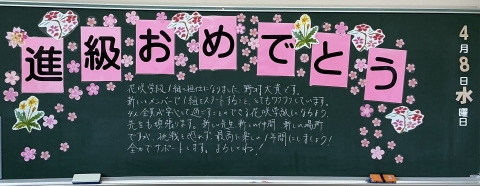 進級おめでとう
4月8日水曜日
花咲学級1組の担任になりました、野村大貴です。
新しいメンバーで1組をスタートすること、とてもワクワクしています。
全員が安心して過ごすことのできる花咲学級にしましょう。
先生も頑張ります。新しい先生、新しい仲間、新しい場所
ですが、挑戦を忘れず、最高に楽しい1年間にしましょう!
全力でサポートします。よろしくね!